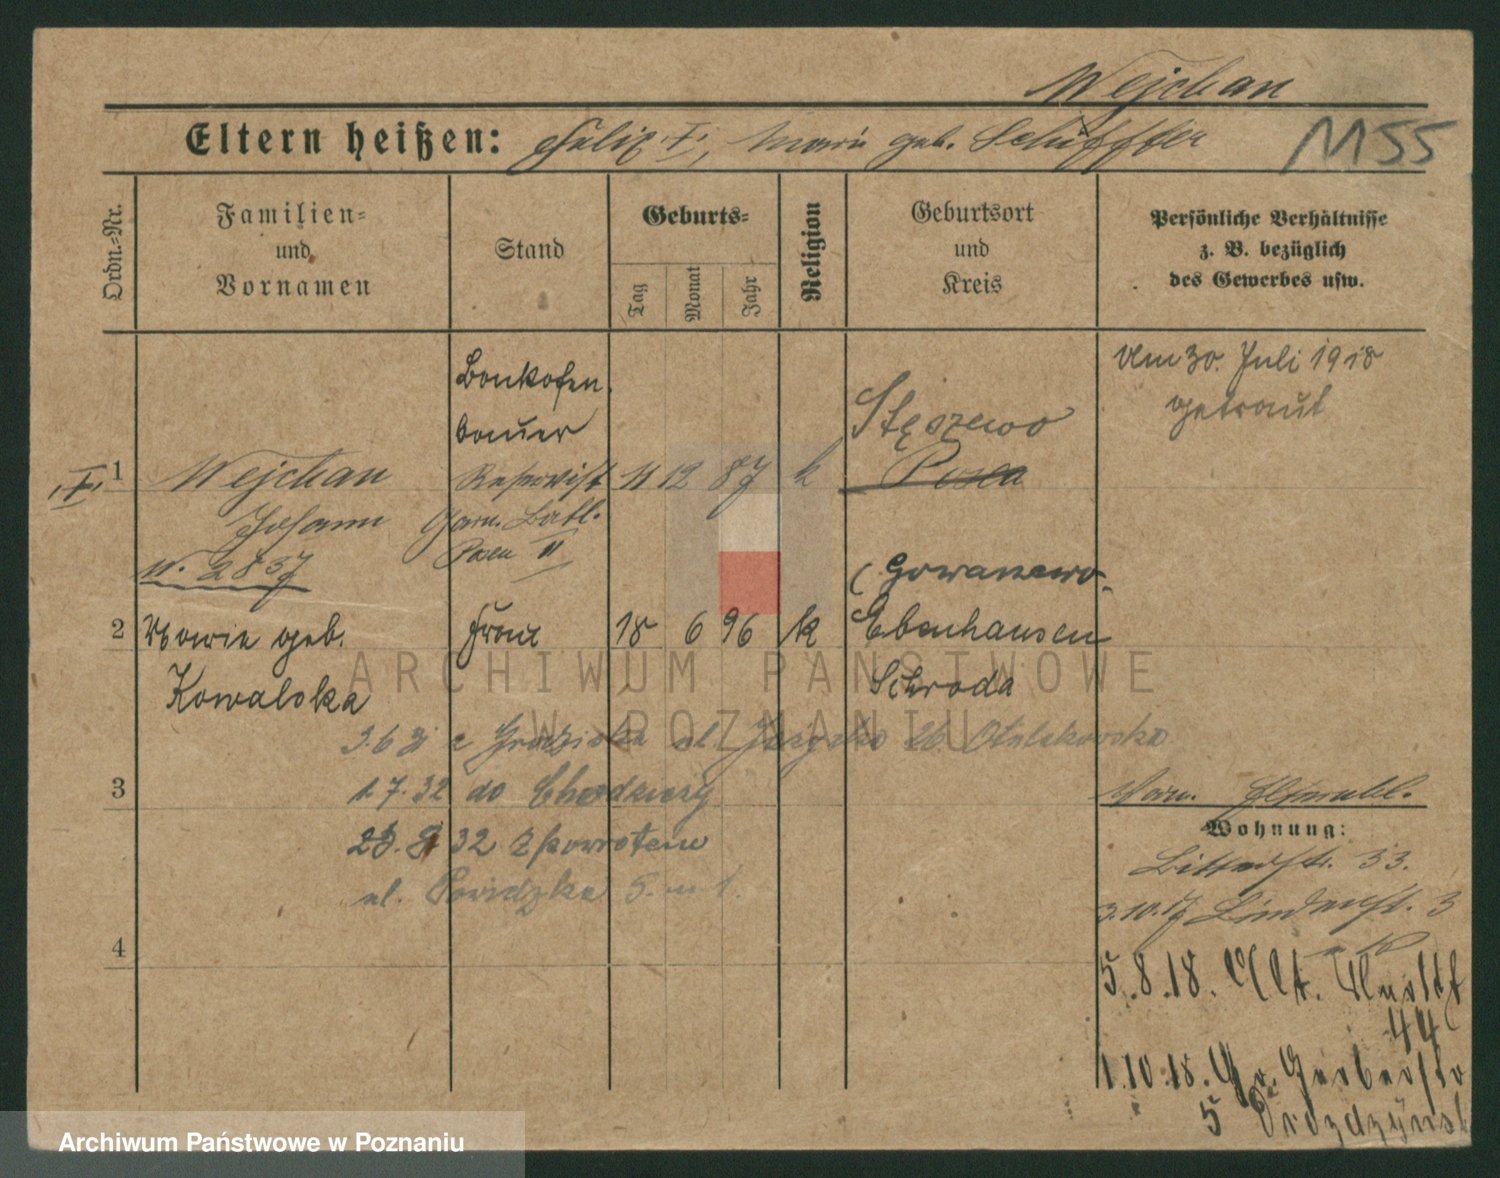 Wejchan
Eltern heißen: Felix †, Marie geb. Schiffter
1155
Ordn.-Nr.
Familien-
und
Vornamen
Stand
Geburts-
Tag
Monat
Jahr
Religion
Geburtsort
und
Kreis
Persönliche Verhältnisse
z. B. bezüglich
des Gewerbes usw.
Am 30. Juli 1918
getraut
Backofen
bauer
Stęszewo
1 Wejchan Reservist 11 12 87 k Posen
Johann Garn. Batl.
Posen II
N. 2837
(Gowarzewo-
2 Marie geb. Frau 18 6 96 k Ebenhausen
Kowalska Schroda
ARCHIWUM PAŃSTWOWE
W POZNANIU
3.6 z Grodziska ul. 26
3
1.7.32 do Chodzieży
32 z powrotem
ul. Powidzka 5. m 1.
Wohnung:
Bitterstr. 33.
3.10.17 Lindenst. 3
4
5.8.18. Alt. Markt
44
1.10.18. Gr. Gerberstr
5 Drozdzynsk
Archiwum Państwowe w Poznaniu